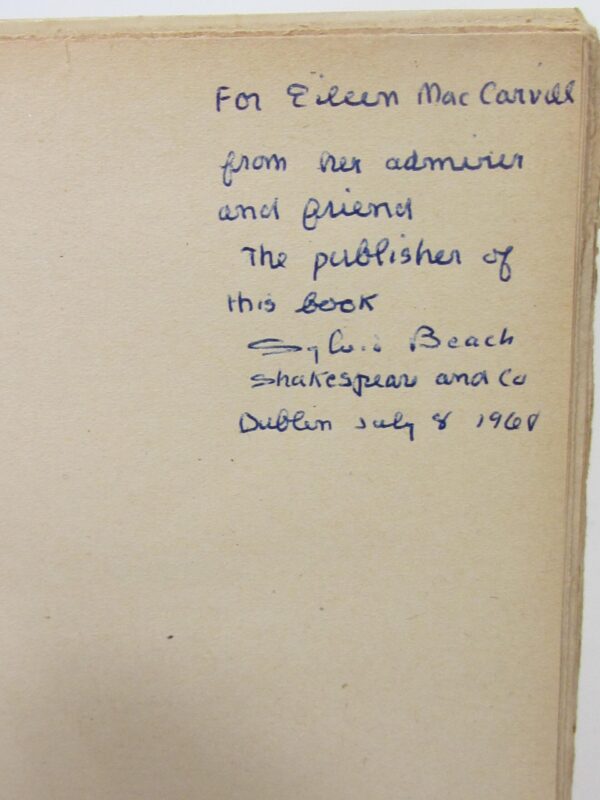 For Eileen MacCarvill
from her admirer
and friend
The publisher of
this book
Sylvia Beach
Shakespeare and Co
Dublin July 8